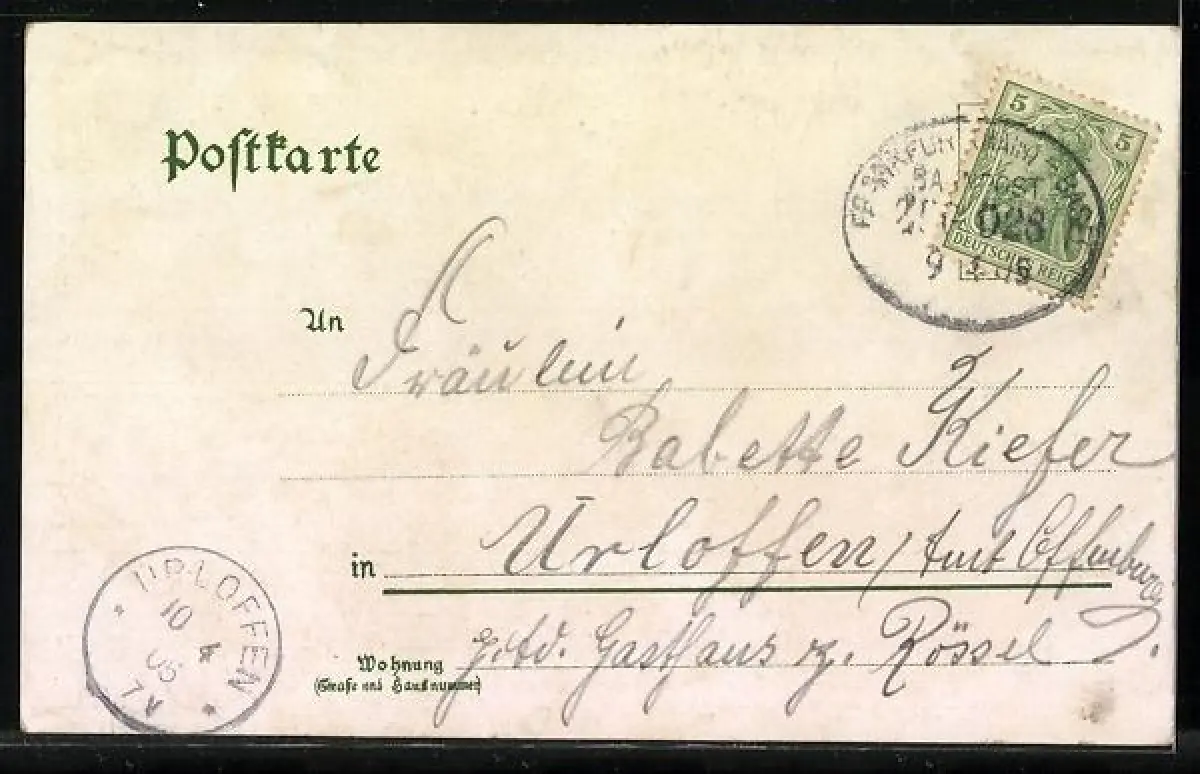 Postkarte
5 5
DEUTSCHES REICH
BAHNPOST
028
9 4
An
Fräulein
Babette Kiefer
in Urloffen / Amt Offenburg
Wohnung
(Straße und Hausnummer)
Gasthaus z. Rössel
URLOFFEN
10
4
7 V